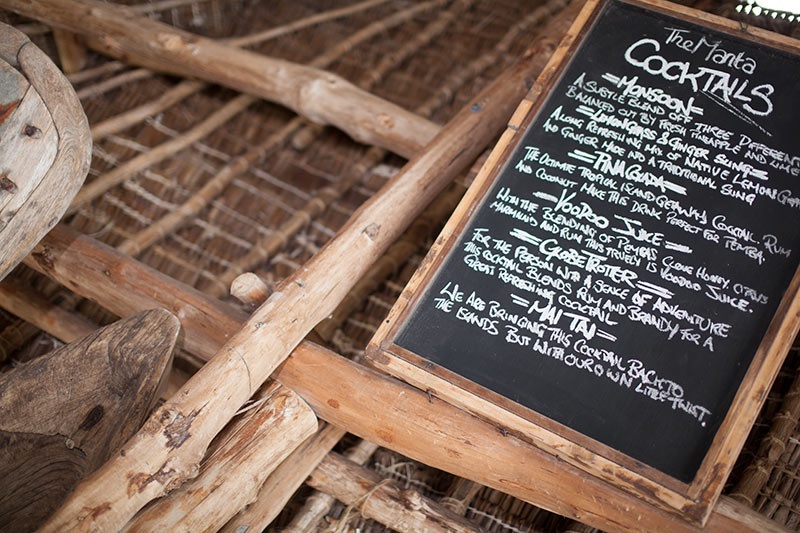 The Manta
Cocktails
=Monsoon=
A subtle blend off three different
balanced out by fresh pineapple and lime
=Lemongrass & Ginger Sling=
A long refreshing mix of native lemon
and ginger made into a traditional sling
=Pina Colada=
The ultimate tropical island getaway cocktail. Rum
and coconut make this drink perfect for Pemba.
=Voodoo Juice=
With the blending of Pembas clove honey,
and rum this truely is Voodoo Juice.
=Globe Trotter=
For the person with a sence of adventure
this cocktail blends rum and brandy for a
great refreshing cocktail
=Mai Tai=
We are bringing this cocktail back to
the islands but with our own little twist.